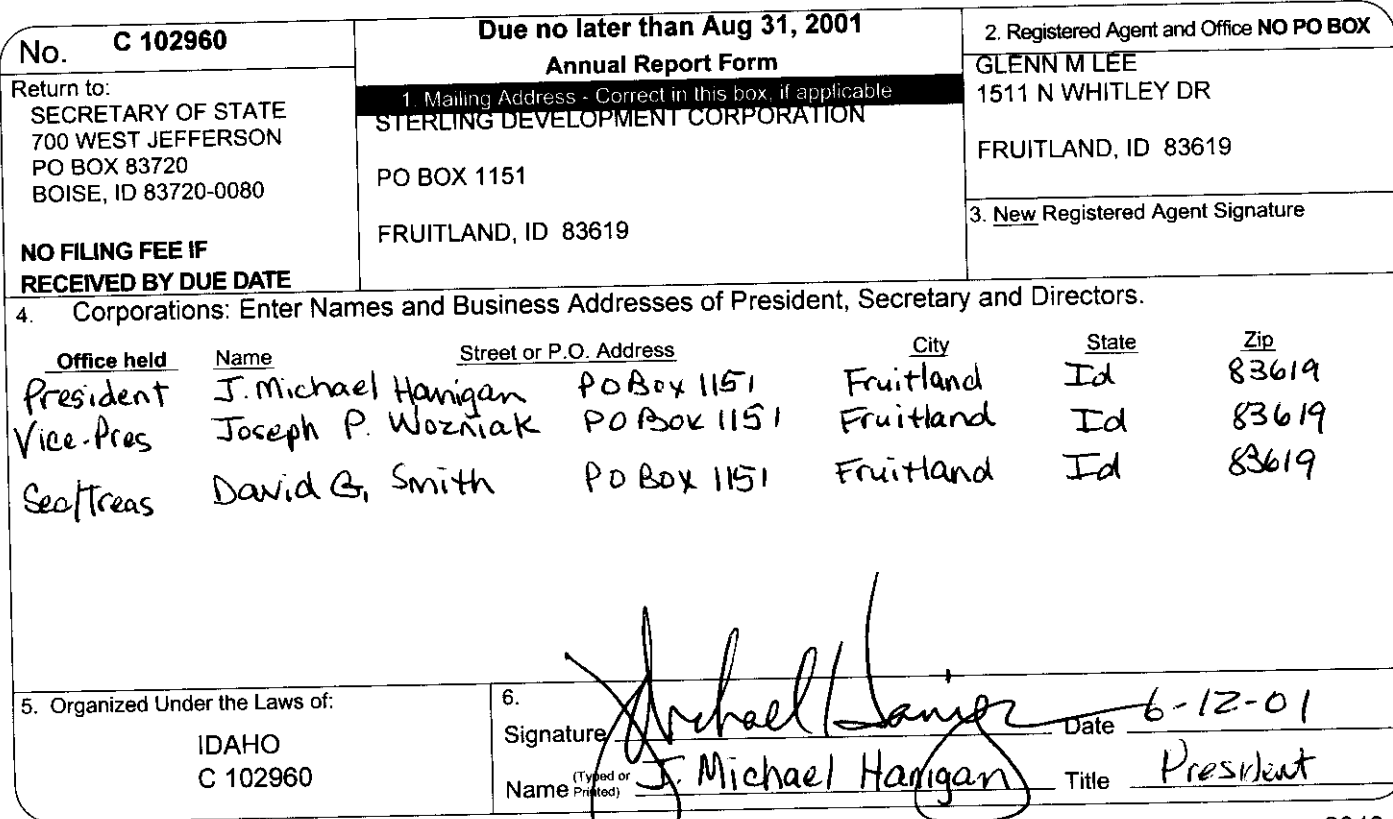 No. C 102960
Return to:
SECRETARY OF STATE
700 WEST JEFFERSON
PO BOX 83720
BOISE, ID 83720-0080
NO FILING FEE IF
RECEIVED BY DUE DATE
Due no later than Aug 31, 2001
Annual Report Form
1. Mailing Address - Correct in this box, if applicable
STERLING DEVELOPMENT CORPORATION
PO BOX 1151
FRUITLAND, ID 83619
2. Registered Agent and Office NO PO BOX
GLENN M LEE
1511 N WHITLEY DR
FRUITLAND, ID 83619
3. New Registered Agent Signature
4. Corporations: Enter Names and Business Addresses of President, Secretary and Directors.
Office held Name Street or P.O. Address City State Zip
President J. Michael Hanigan PO Box 1151 Fruitland Id 83619
Vice-Pres Joseph P. Wozniak PO Box 1151 Fruitland Id 83619
Sec/Treas David G. Smith PO Box 1151 Fruitland Id 83619
5. Organized Under the Laws of:
IDAHO
C 102960
6.
Signature J Michael Hanigan Date 6-12-01
Name (Typed or Printed) J. Michael Hanigan Title President